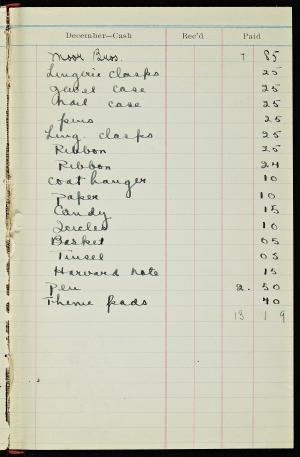 December—Cash Rec'd Paid
Moor Bros. 7 85
Lingerie clasps 25
case 25
Nail case 25
pins 25
Ling. clasps 25
Ribbon 25
Ribbon 24
Coat hanger 10
Paper 10
Candy 15
10
Basket 05
Tinsel 05
Harvard note 15
Pen 2. 50
Theme pads 40
13 19